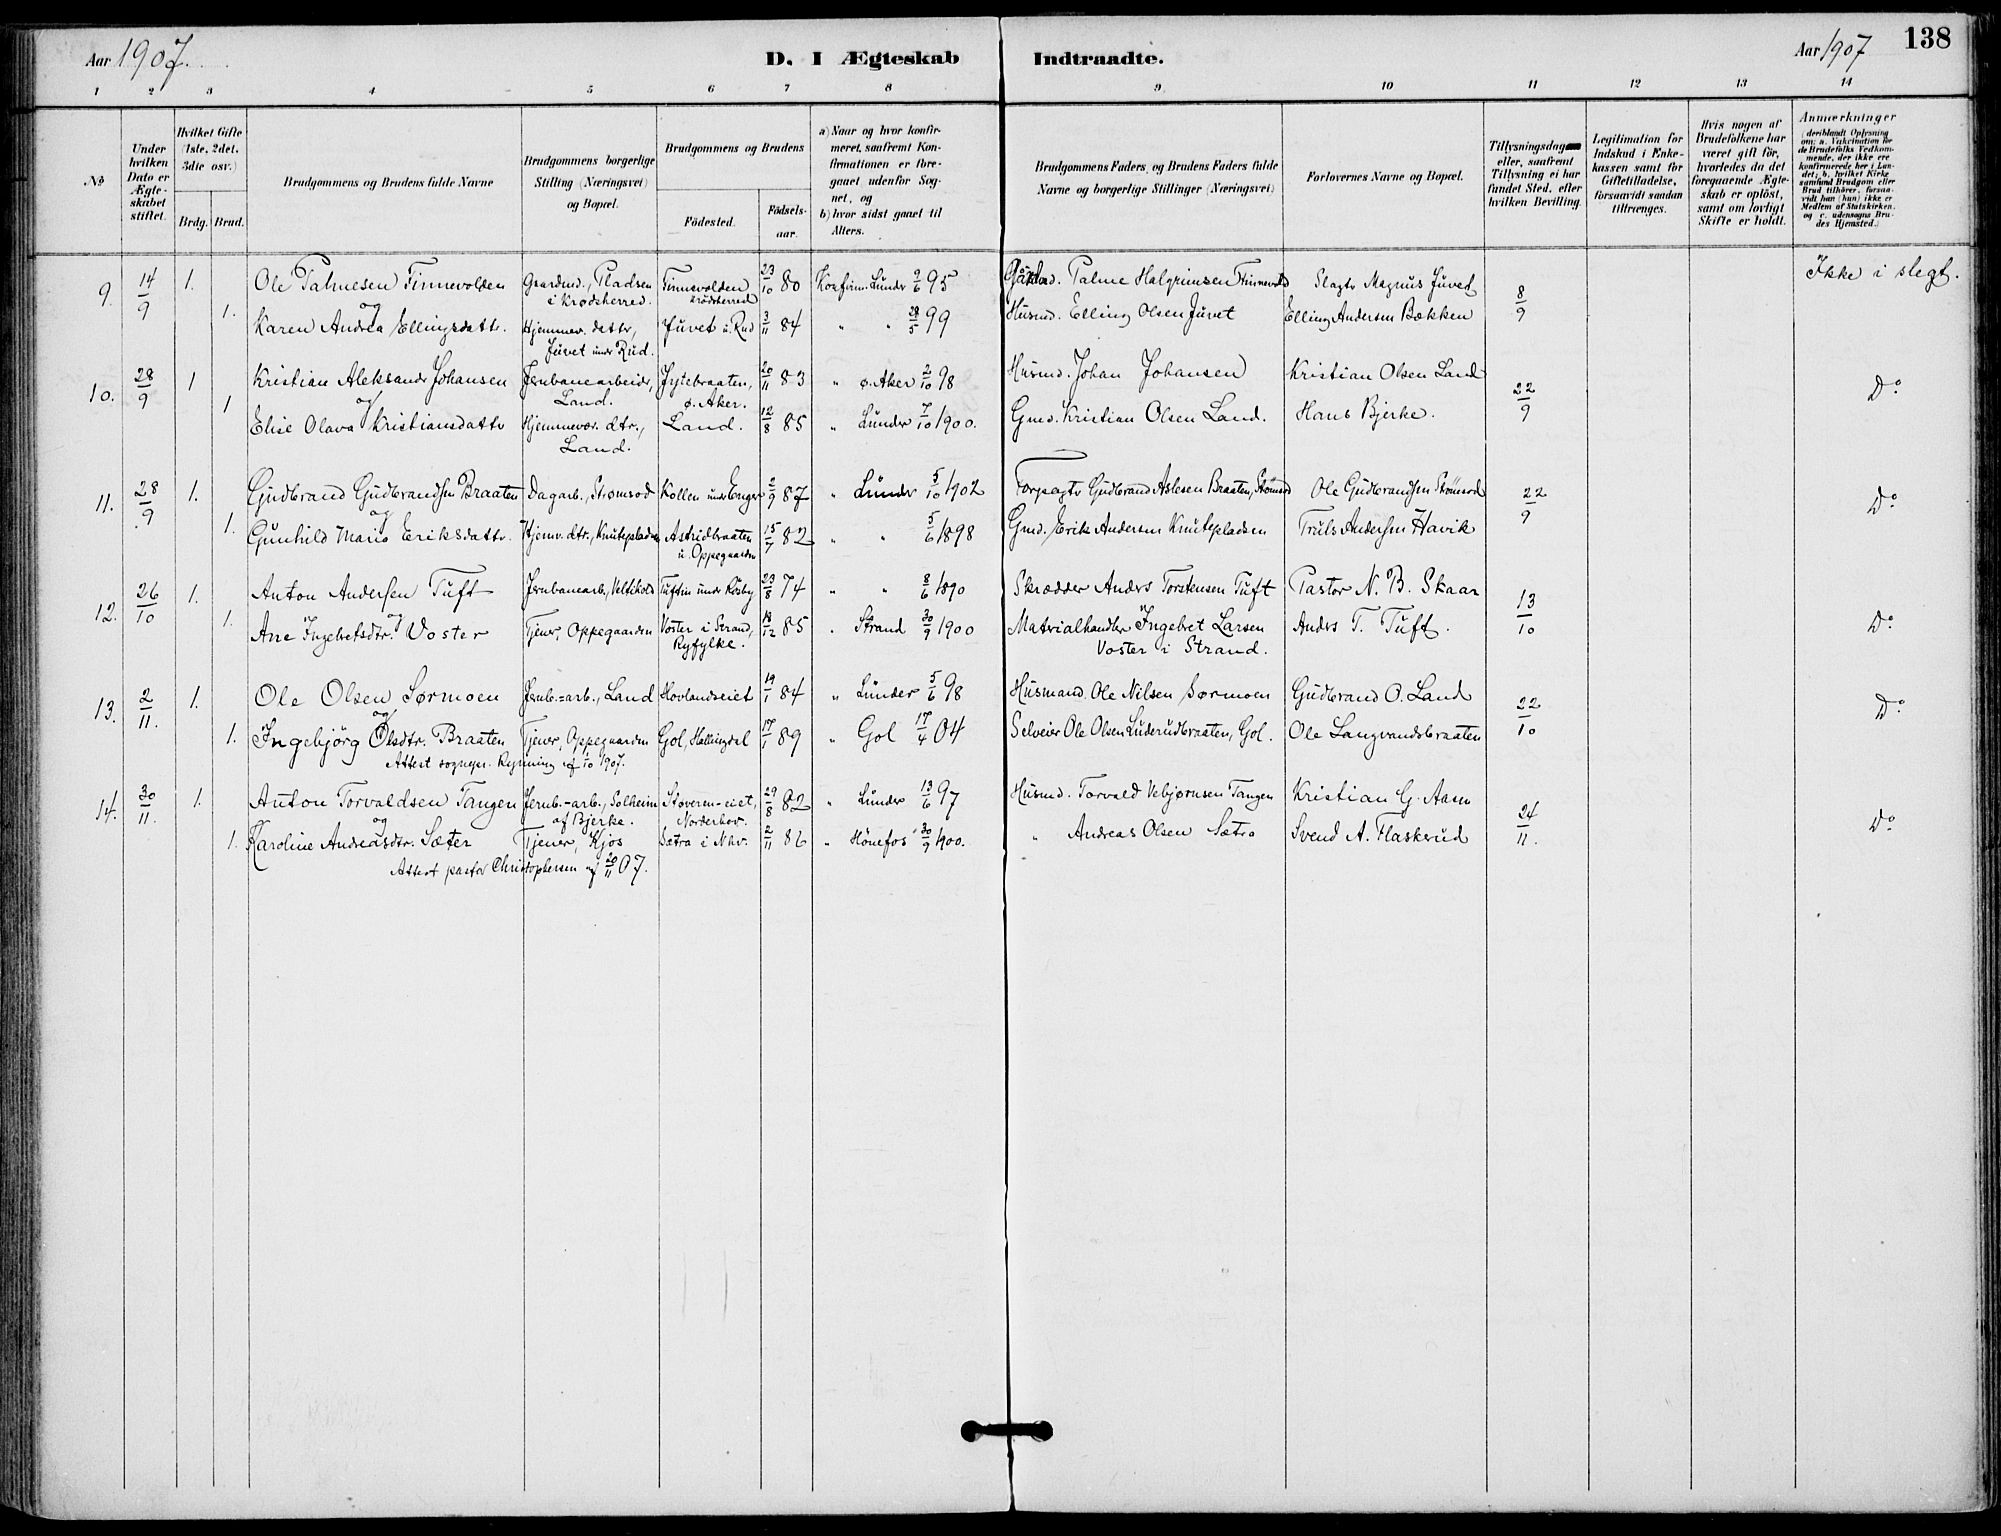 Aar 1907.
D. I Ægteskab Indtraadte.
Aar 1907
138
1 2 3 4 5 6 7 8 9 10 11 12 13 14
No
Under hvilken Dato er Ægte-skabet stiftet.
Hvilket Gifte (1ste, 2det, 3die osv.)
Brdg. Brud.
Brudgommens og Brudens fulde Navne
Brudgommens borgerlige Stilling (Næringsvei) og Bopæl.
Brudgommens og Brudens
Födested. Födsels-aar.
a) Naar og hvor konfir-meret, saafremt Kon-firmationen er fore-gaaet udenfor Sog-net, og
b) hvor sidst gaaet til Alters.
Brudgommens Faders og Brudens Faders fulde Navne og borgerlige Stillinger (Næringsvei)
Forlovernes Navne og Bopæl.
Tillysningsdagen eller, saafremt Tillysning ei har fundet Sted, efter hvilken Bevilling.
Legitimation for Indskud i Enke-kassen samt for Giftetilladelse, forsaavidt saadan tiltrænges.
Hvis nogen af Brudefolkene har været gift för, hvorledes da det foregaaende Ægte-skab er oplöst, samt om lovligt Skifte er holdt.
Anmærkninger
(deriblandt Oplysning om: a. Vakcination for de Brudefolks Vedkom-mende, der ikke ere konfirmerede her i Lan-det; b. hvilket Kirke-samfund Brudgom eller Brud tilhörer, forsaa-vidt han (hun) ikke er Medlem af Statskirken, og c. udensogns Bru-des Hjemsted.)
9. 14/9 1. Ole Palmesen Finnevolden Gaardmd., Pladsen i Krødsherred. Finnevolden Krødsherred 23/10 80 Konfirm. Lunder 2/6 95 Palme Halgrimsen Finnevold Slagter Magnus Juvet 8/9 Ikke i slegt.
og
1. Karen Andrea Ellingsdatter. Hjemmev. datter, Juvet under Rud. Juvet u. Rud 3/11 84 " " 28/5 99 Husmd. Elling Olsen Juvet Elling Andersen Bækken
10. 28/9 1 Kristian Aleksander Johansen Jernbanearbeider, Land. ø. Aker. 20/11 83 " ø. Aker 2/10 98 Husmd. Johan Johansen Kristian Olsen Land 22/9 Do
og
1 Elise Olava Kristiansdatter Hjemmevær. dtr., Land. Land. 12/8 85 " Lunder 7/10 1900. Gmd. Kristian Olsen Land. Hans Bjerke.
11. 28/9 1. Gudbrand Gudbrandsen Braaten Dagarb., Strømsod Kollen under Enger 2/9 87 " Lunder 5/10 1902 Forpagter Gudbrand Aslesen Braaten, Strömsod Ole Gudbrandsen Strömsod 22/9 Do
og
1. Gunhild Marie Eriksdatter. Hjemv. dtr., Knutepladsen Astridbraaten u. Oppegaarden 15/7 82 " " 5/6 1898 Gmd. Erik Andersen Knutepladsen Truls Andersen Havik
12. 26/10 1. Anton Andersen Tuft Jernbanearb., Veltikold Tuftin under Rosby 23/8 74 " " 8/6 1890 Skrædder Anders Torstensen Tuft Pastor N. B. Skaar 13/10 Do
og
1. Ane Ingebretsdtr. Voster Tjener, Oppegaarden Voster i Strand, Ryfylke. 18/12 85 " Strand 30/9 1900 Materialhandler Ingebret Larsen Voster i Strand. Anders T. Tuft.
13. 2/11. 1. Ole Olsen Sørmoen Jernb.-arb., Land Hovlandseiet 19/1 84 " Lunder 5/6 98 Husmand. Ole Nilsen Sørmoen Gudbrand O. Land 22/10 Do
og
1. Ingebjörg Olsdtr. Braaten Tjener, Oppegaarden Gol, Hallingdal 17/1 89 " Gol 17/4 04 Selveier Ole Olsen Luderudbraaten, Gol. Ole Langvandsbraaten
Attest sognepr. Rynning af 11/10 1907.
14. 30/11. 1. Anton Torvaldsen Tangen Jernb.-arb., Solheim af Bjerke. Stoveren-eiet, Norderhov. 29/8 82 " Lunder 13/6 97 Husmd. Torvald Vebjørnsen Tangen Kristian G. Aasen 24/11. Do
og
1. Karoline Andreasdtr. Sæter Tjener, Kjos Sætra i Nhv. 2/11 86 " Hönefos 30/9 1900. " Andreas Olsen Sætra Svend A. Flaskerud
Attest pastor Christophersen af 20/11 07.